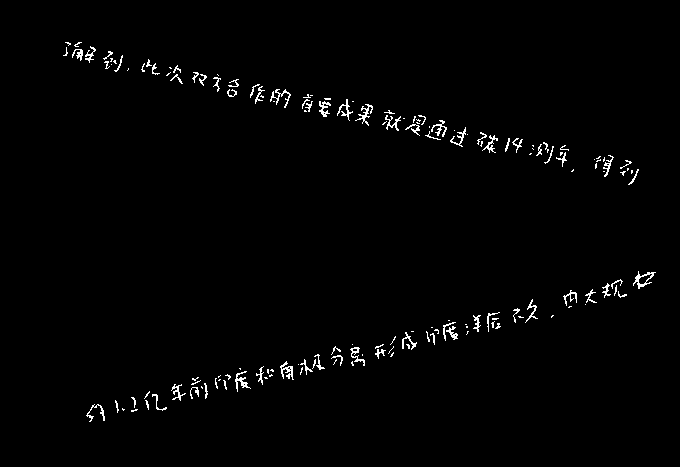 了解到,此次双方合作的首要成果就是通过碳14测年,得到
约1.2亿年前印度和南极分离形成印度洋后不久,由大规模